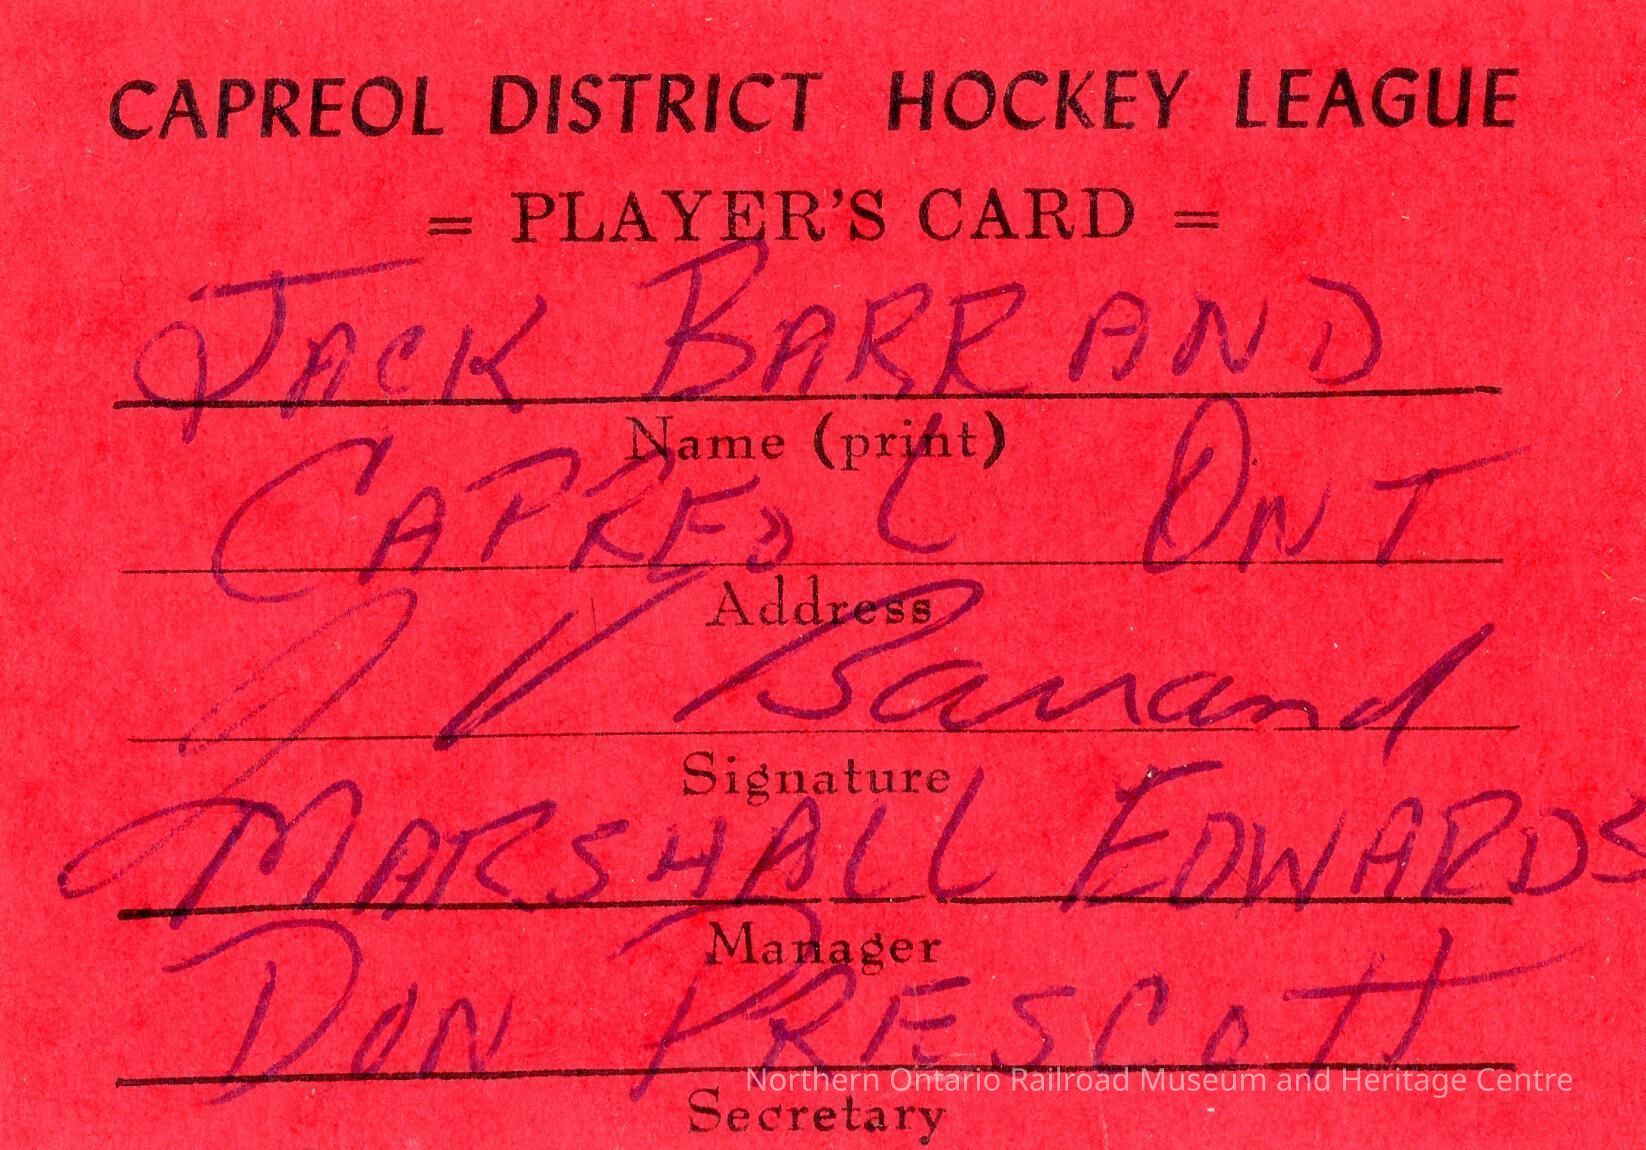 CAPREOL DISTRICT HOCKEY LEAGUE
= PLAYER'S CARD =
JACK BARRAND
Name (print)
CAPREOL ONT
Address
J V Barrand
Signature
MARSHALL EDWARDS
Manager
DON PRESCOTT
Northern Ontario Railroad Museum and Heritage Centre
Secretary